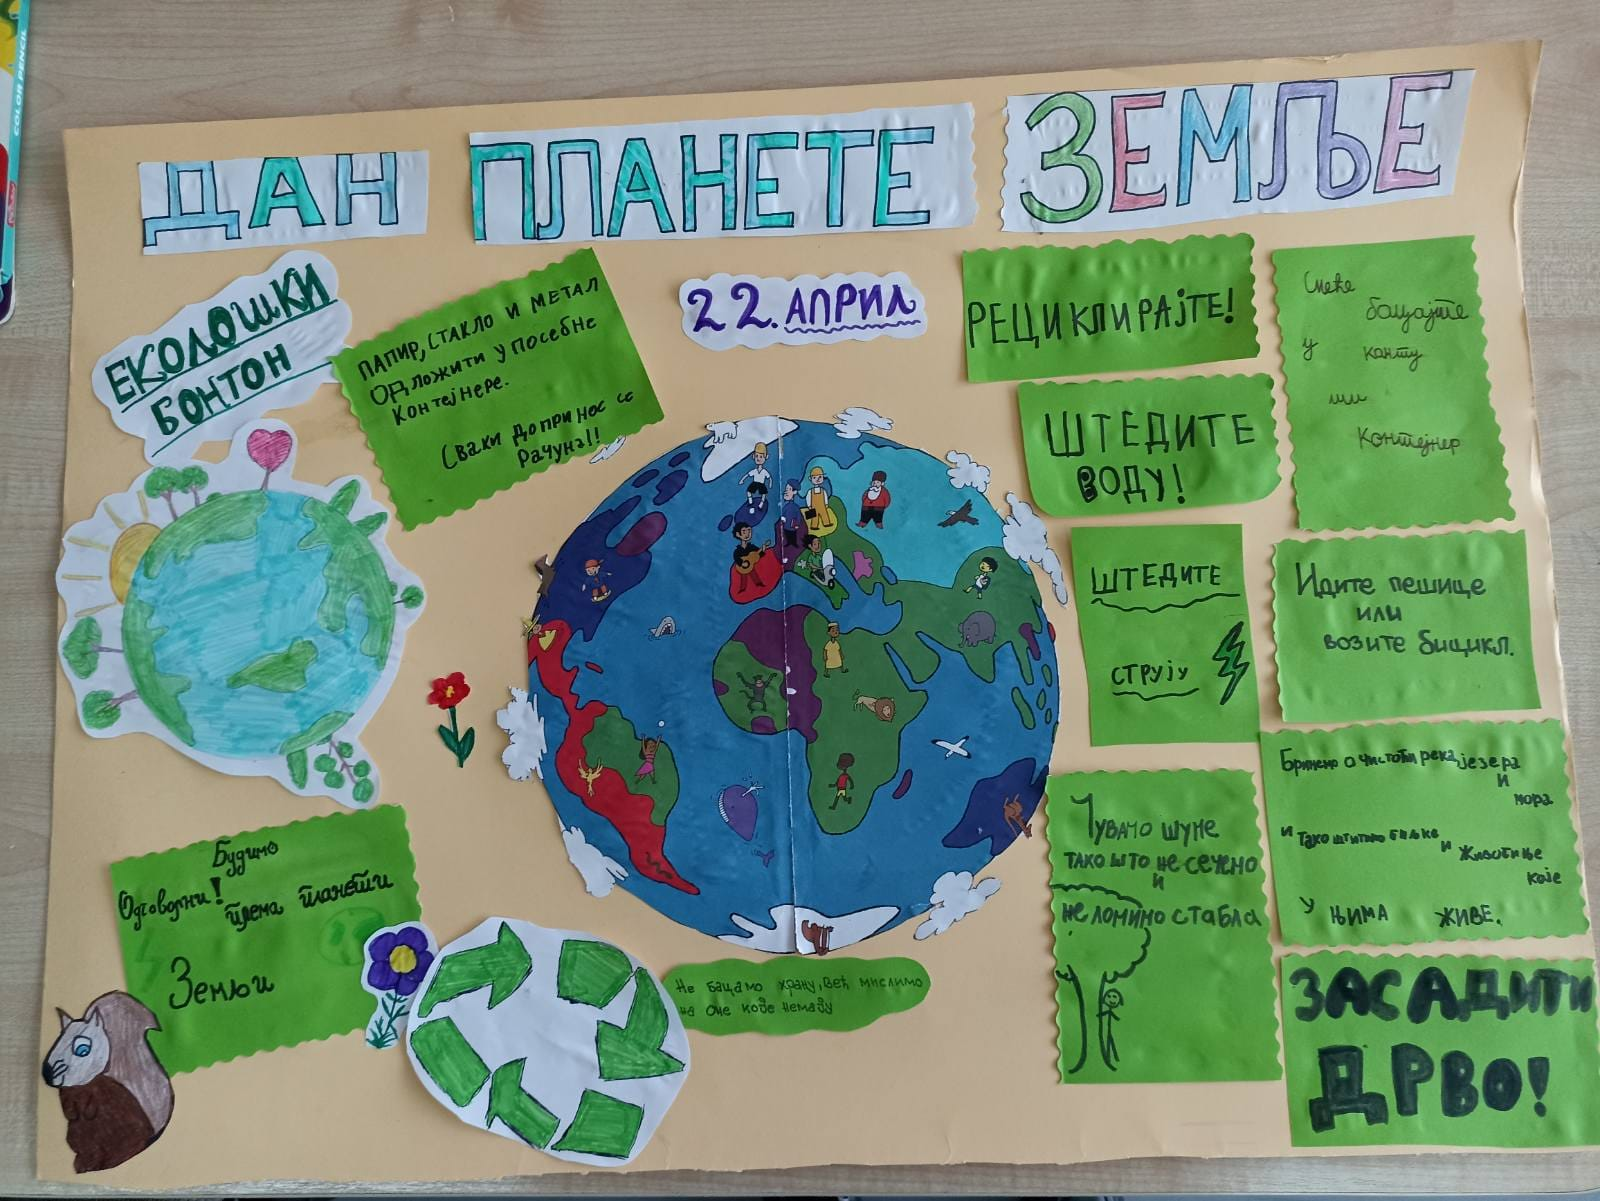 COLOR PENCIL
ДАН ПЛАНЕТЕ ЗЕМЉЕ
ЕКОЛОШКИ
БОНТОН
ПАПИР, СТАКЛО И МЕТАЛ
ОДЛОЖИТИ У ПОСЕБНЕ
КОНТЕЈНЕРЕ.
СВАКИ ДОПРИНОС СЕ
РАЧУНА!!
22. АПРИЛ
РЕЦИКЛИРАЈТЕ!
ШТЕДИТЕ
ВОДУ!
ШТЕДИТЕ
СТРУЈУ
Смеће
бацајте
у канту
или
Контејнер
Идите пешице
или
возите бицикл.
Бринемо о чистоћи река, језера
и
мора
и тако штитимо биљке
и животиње
које
у ЊИМА ЖИВЕ.
Чувамо шуме
тако што не сечемо
и
не ломимо стабла
ЗАСАДИТИ
ДРВО!
Будимо
Одговорни!
према планети
Земљи
Не бацамо храну, већ мислимо
на оне које немају